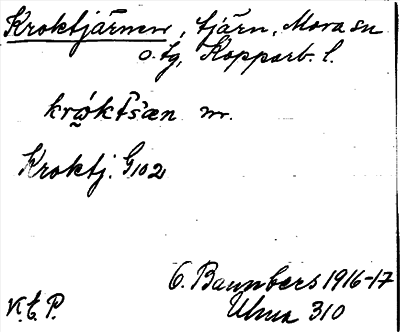 Kroktjärnen, tjärn, Mora sn
o. tg, Kopparb. l.
krǫ́ktsæn m.
Kroktj. G102
C. Baumbers 1916-17
V.t.P. Ulma 310